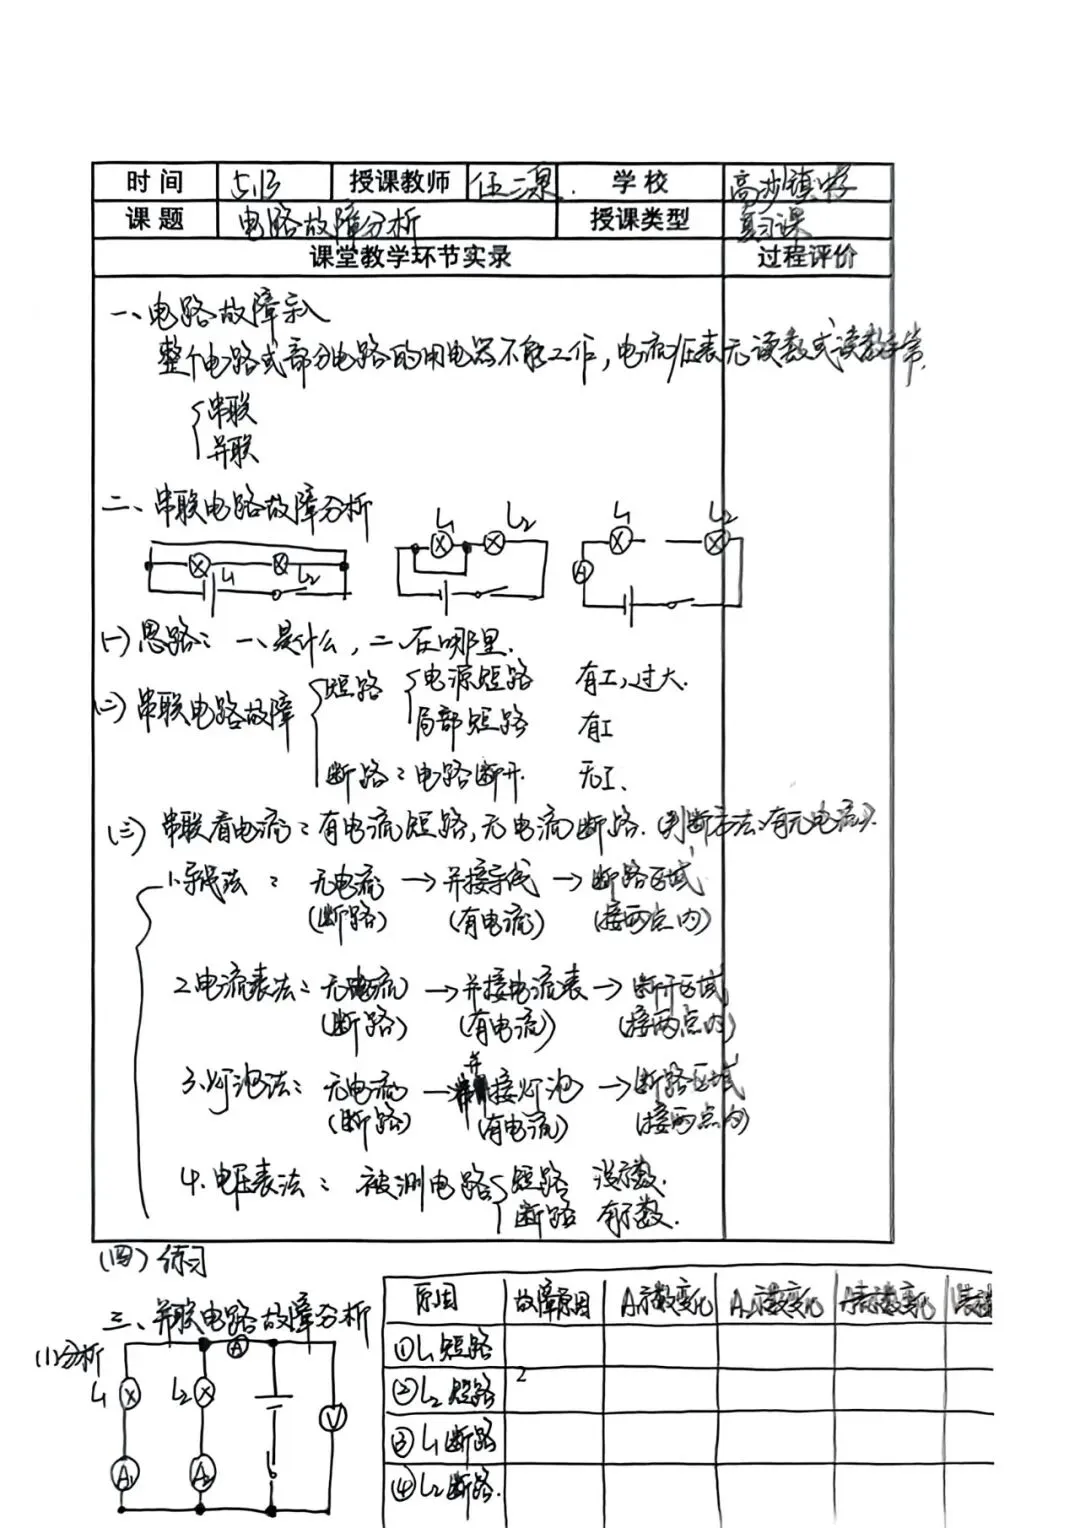 时间 5.13 授课教师 伍二泉 学校 高埗镇中学
课题 电路故障分析 授课类型 复习课
课堂教学环节实录 过程评价
一、电路故障导入
整个电路或部分电路的用电器不能工作，电流/压表无读数或读数异常.
串联
并联
二、串联电路故障分析
L₁ L₂ L₁ L₂ L₁ L₂ A
(一)思路：一、是什么，二、在哪里.
(二)串联电路故障 短路 电源短路 有I，过大.
局部短路 有I
断路：电路断开. 无I.
(三)串联看电流：有电流短路，无电流断路.(判断方法：有无电流).
1.导线法： 无电流 → 并接导线 → 断路区域
(断路) (有电流) (接两点内)
2.电流表法：无电流 → 并接电流表 → 断开区域
(断路) (有电流) (接两点内)
3.灯泡法：无电流 → 并接灯泡 → 断路区域
(断路) (有电流) (接两点内)
4.电压表法：被测电路 短路 没示数.
断路 有示数.
(四)练习
三、并联电路故障分析
(1)分析
L₁ L₂ A V
A₁ A₂
原因 故障原因 A₁示数变化 A₂示数变化 A表示数变化
①L₁短路
②L₂短路 2
③L₁断路
④L₂断路.